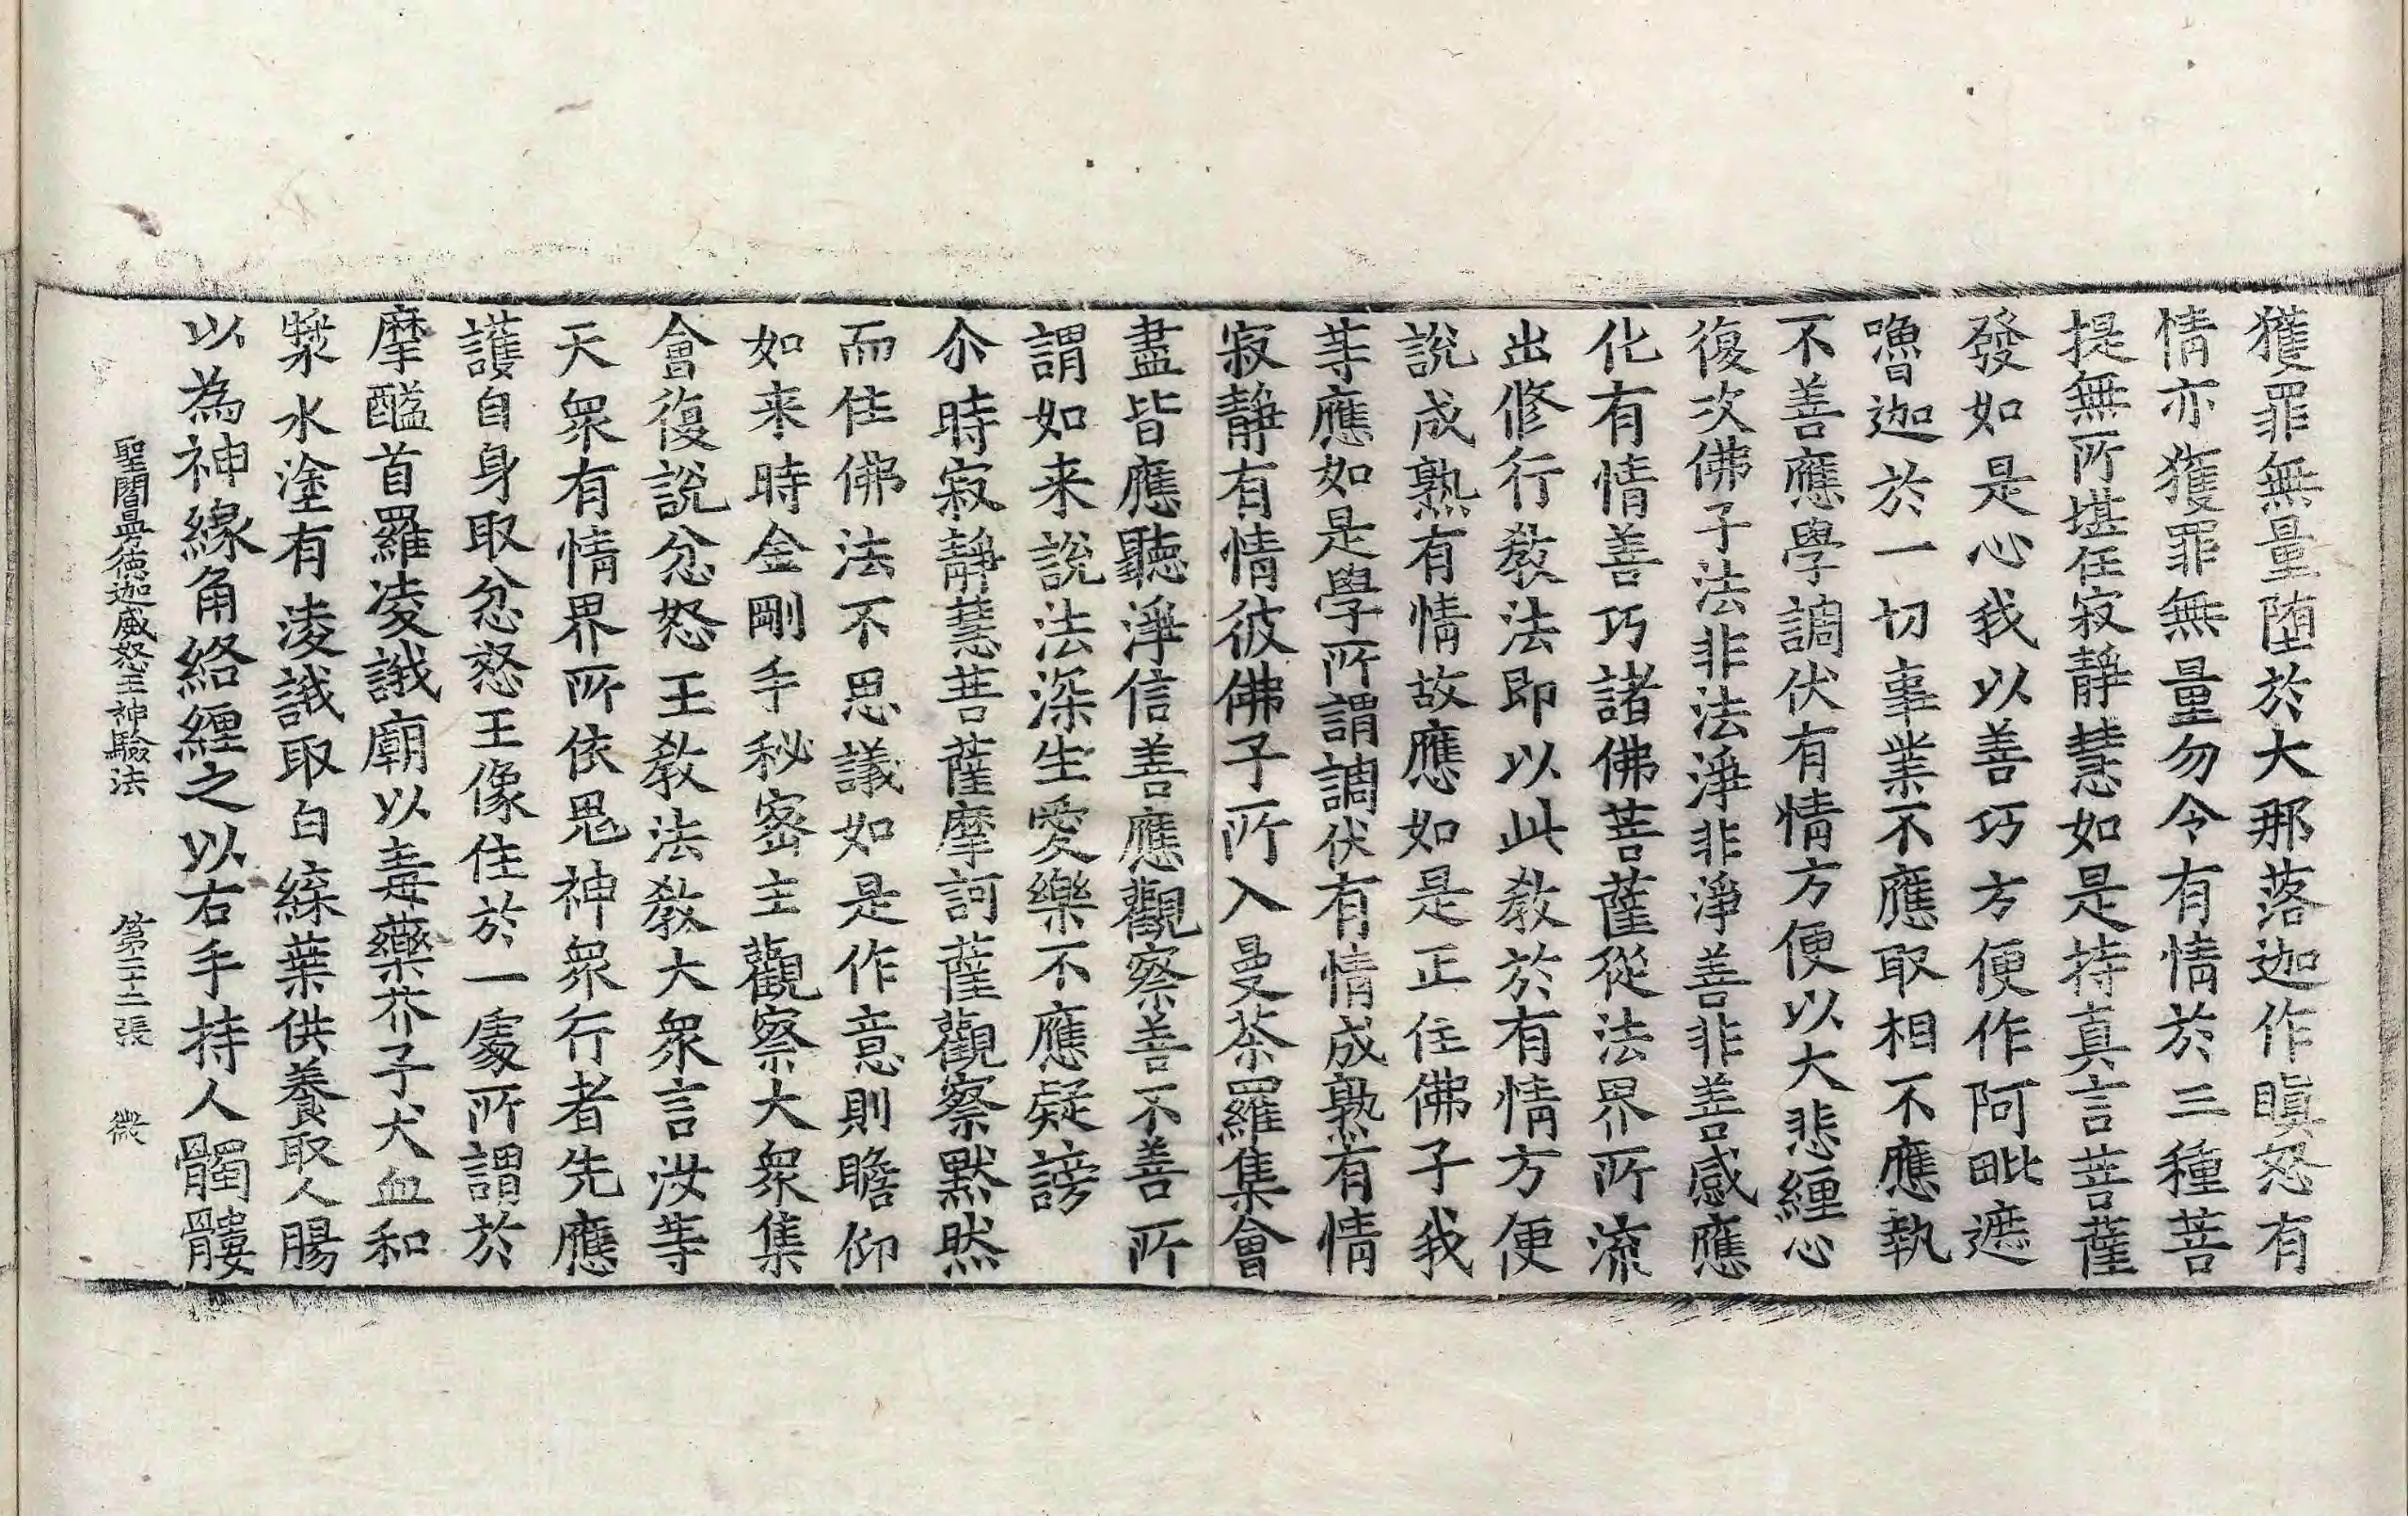 獲罪無量堕於大那落迦作瞋怒有
情亦獲罪無量勿令有情於三種菩
提無所堪任寂靜慧如是持真言菩薩
發如是心我以善巧方便作阿毗遮
嚕迦於一切事業不應取相不應執
不善應學調伏有情方便以大悲纏心
復次佛子法非法淨非淨善非善感應
化有情善巧諸佛菩薩從法界所流
出修行教法即以此教於有情方便
說成熟有情故應如是正住佛子我
等應如是學所謂調伏有情成熟有情
寂靜有情彼佛子所入曼荼羅集會
盡皆應聽淨信善應觀察善不善所
謂如来說法深生愛樂不應疑謗
尒時寂靜慧菩薩摩訶薩觀察默然
而住佛法不思議如是作意則瞻仰
如来時金剛手秘密主觀察大衆集
會復說忿怒王教法教大衆言汝等
天衆有情界所依鬼神衆行者先應
護自身取忿怒王像住於一處所謂於
摩醯首羅淩誐廟以毒藥芥子犬血和
漿水塗有淩誐取白綵葉供養取人腸
以為神線角絡纏之以右手持人髑髏
聖閻曼德迦威怒王神驗法　第二十二張　微